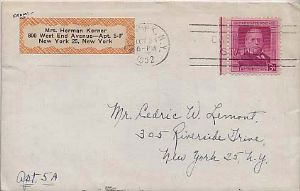 Mrs. Herman Kerner
800 West End Avenue—Apt. 5-F
New York 25, New York
N.Y.
6-PM
1952
Mr. Cedric W. Lemont,
305 Riverside Drive,
New York 25, N.Y.
Apt. 5A